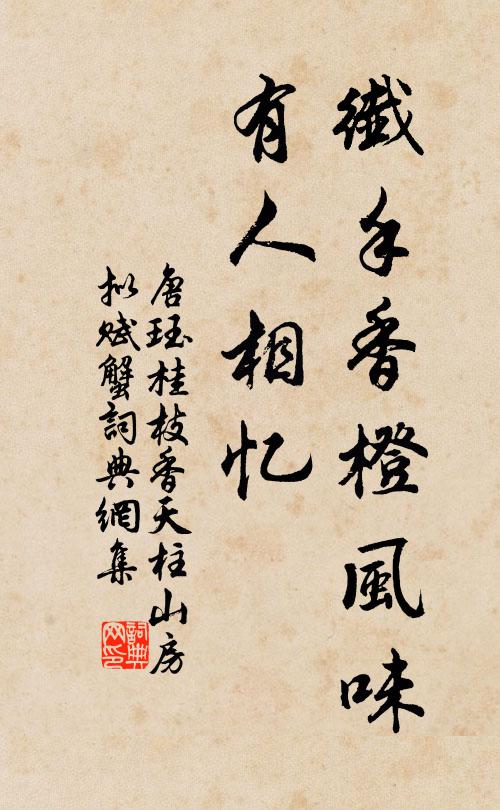 纖手香橙風味
有人相忆
唐珏桂枝香天柱山房
拟赋蟹詞典網集
詞典网印